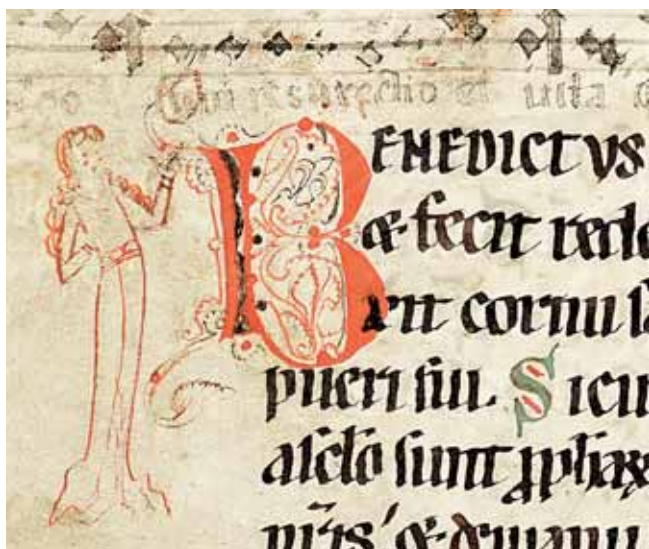 resurrectio et uita
BENEDICTVS
& fecit rede
erit cornu sa
pueri sui. Sicu
a sclo sunt pphax
nris' & demanu